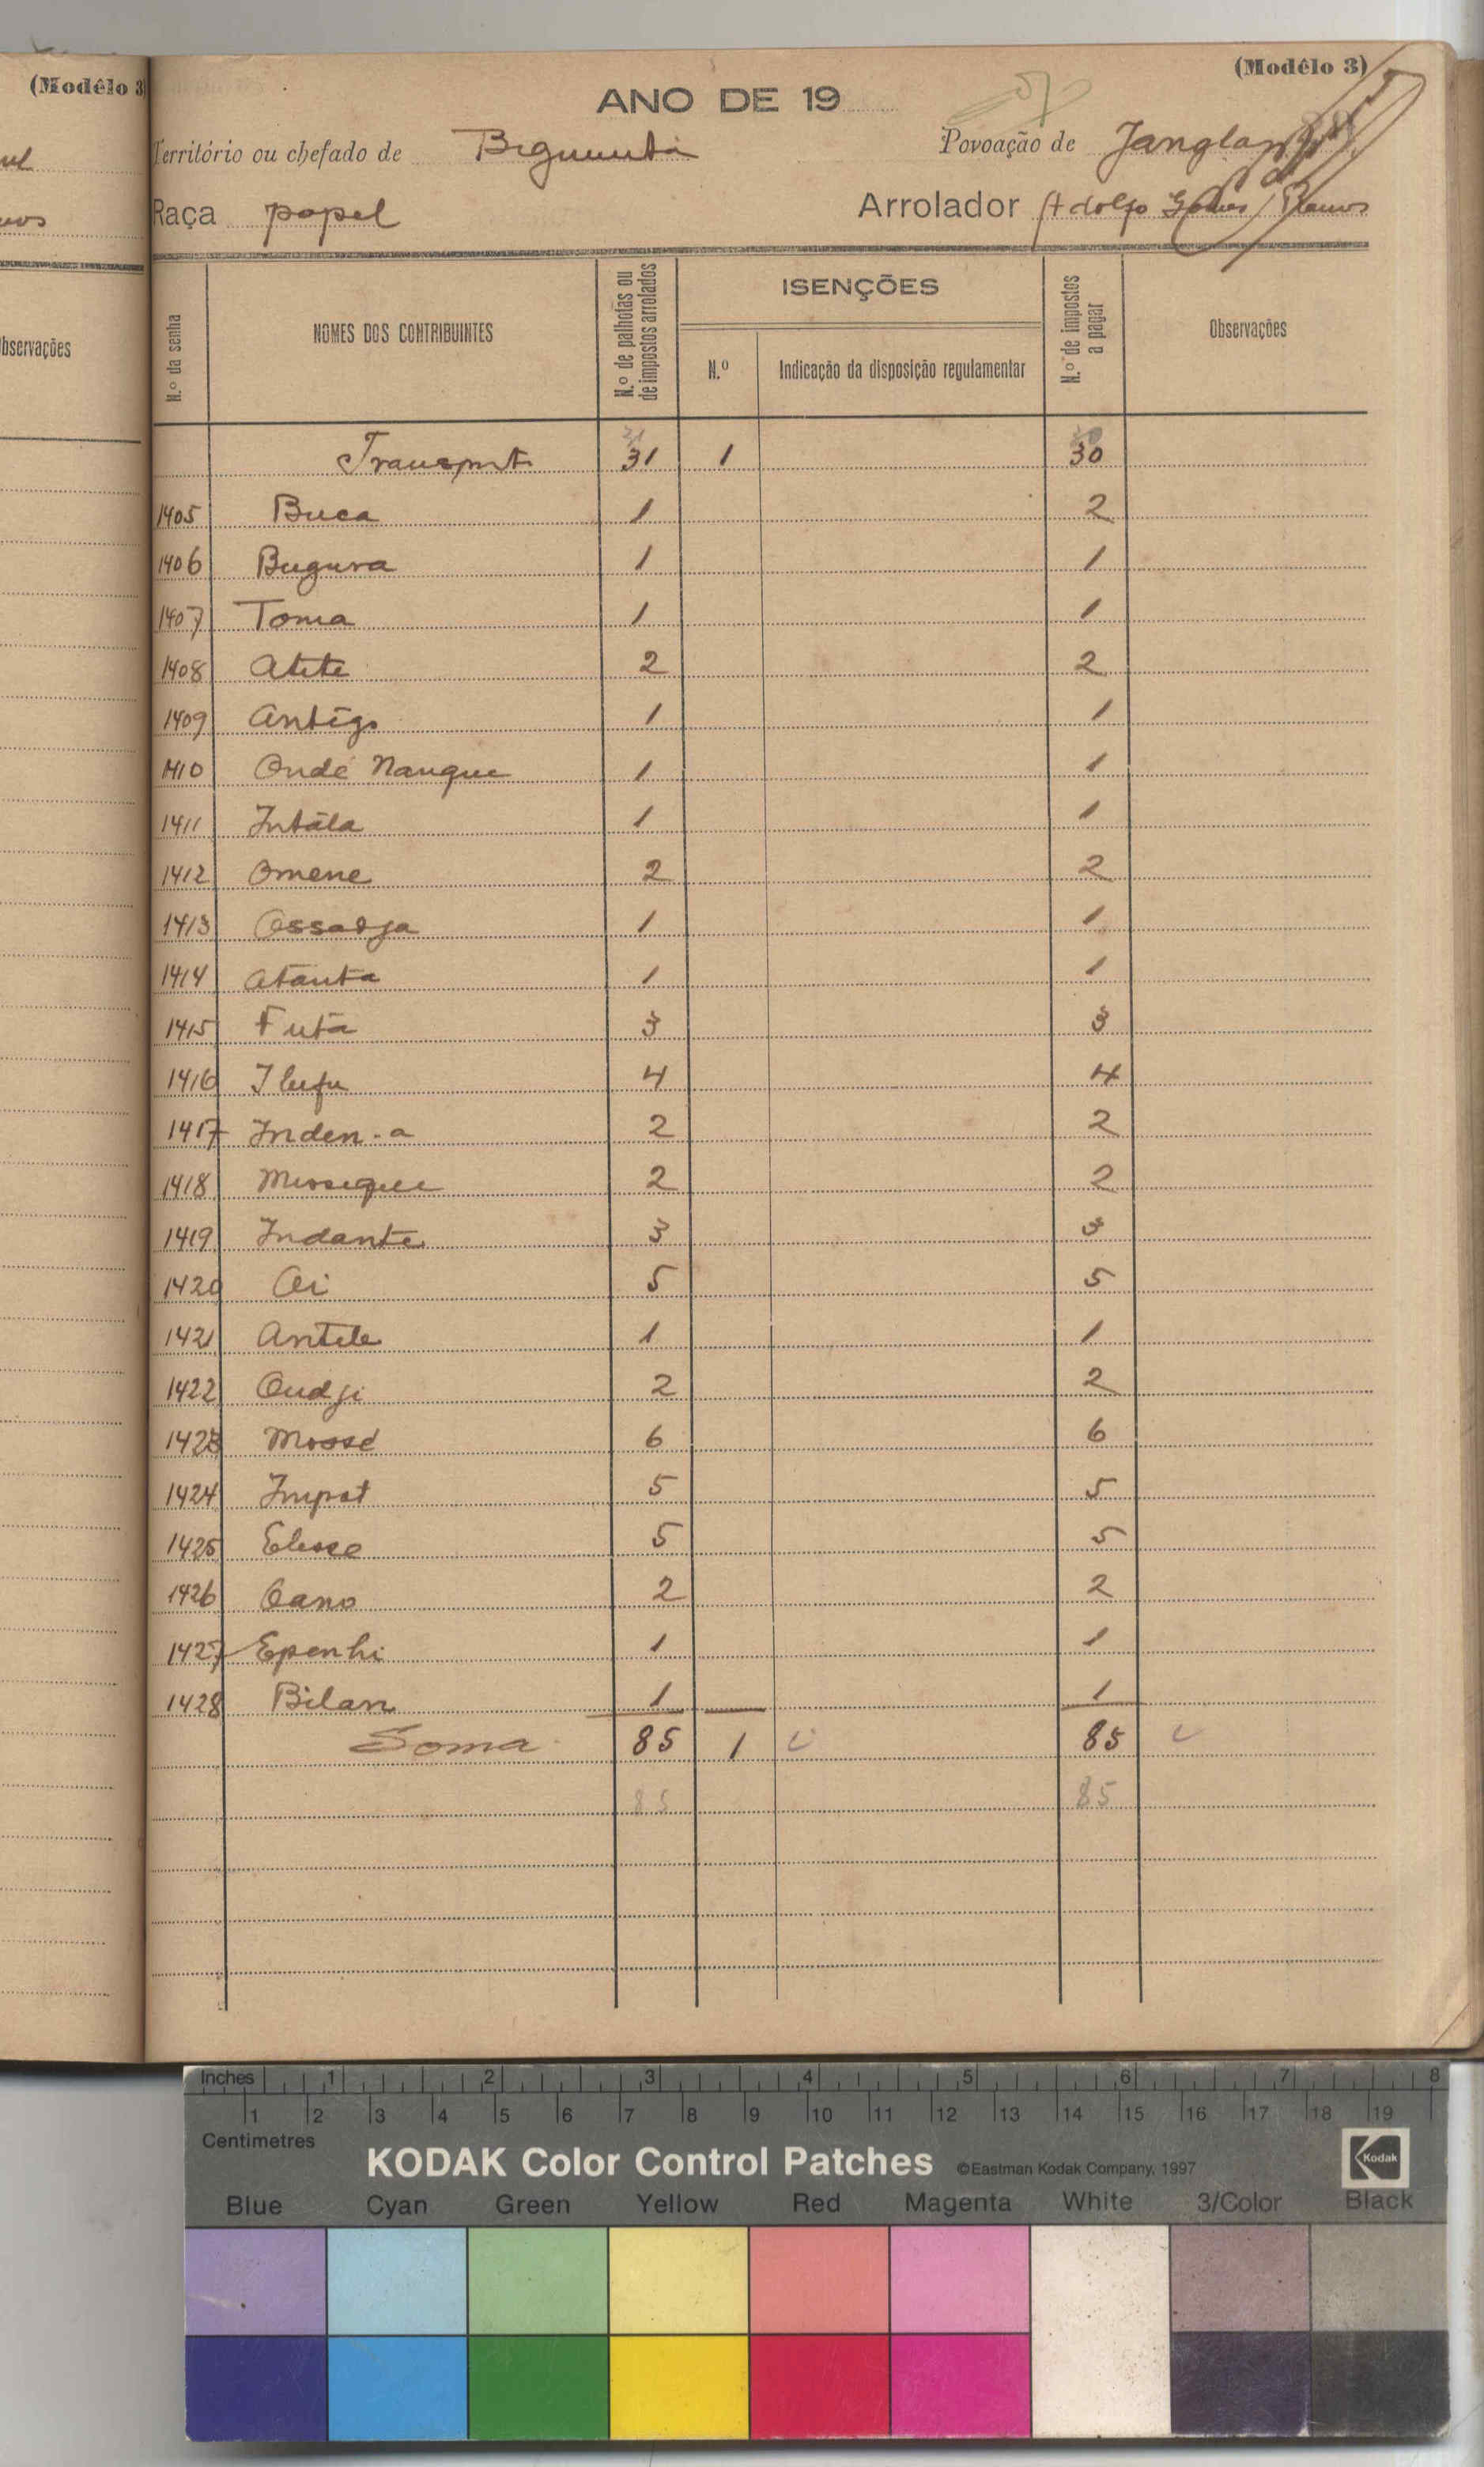 (Modêlo 3)
(Modêlo 3)
ANO DE 19
Território ou chefado de Bigumita
Povoação de
Raça papel
Arrolador Adolfo Gomes Ramos
Observações
N.º da senha
NOMES DOS CONTRIBUINTES
N.º de palhotas ou de impostos arrolados
ISENÇÕES
N.º
Indicação da disposição regulamentar
N.º de impostos a pagar
Observações
Transporte 31 1 30
1405 Buca 1 2
1406 Bugura 1 1
1407 Toma 1 1
1408 Atite 2 2
1409 Antigo 1 1
1410 Ondé Nanque 1 1
1411 Intála 1 1
1412 Omene 2 2
1413 Ossadja 1 1
1414 Atanta 1 1
1415 Futa 3 3
1416 3 4 4
1417 Inden-a 2 2
1418 2 2
1419 Indante 3 3
1420 Oi 5 5
1421 Antile 1 1
1422 Ondji 2 2
1423 Mossé 6 6
1424 Impot 5 5
1425 Elesse 5 5
1426 Cano 2 2
1427 Epenhi 1 1
1428 Bilan 1 1
Soma 85 1 85
85 85
Inches 1 2 3 4 5 6 7 8
1 2 3 4 5 6 7 8 9 10 11 12 13 14 15 16 17 18 19
Centimetres
KODAK Color Control Patches ©Eastman Kodak Company, 1997 Kodak
Blue Cyan Green Yellow Red Magenta White 3/Color Black